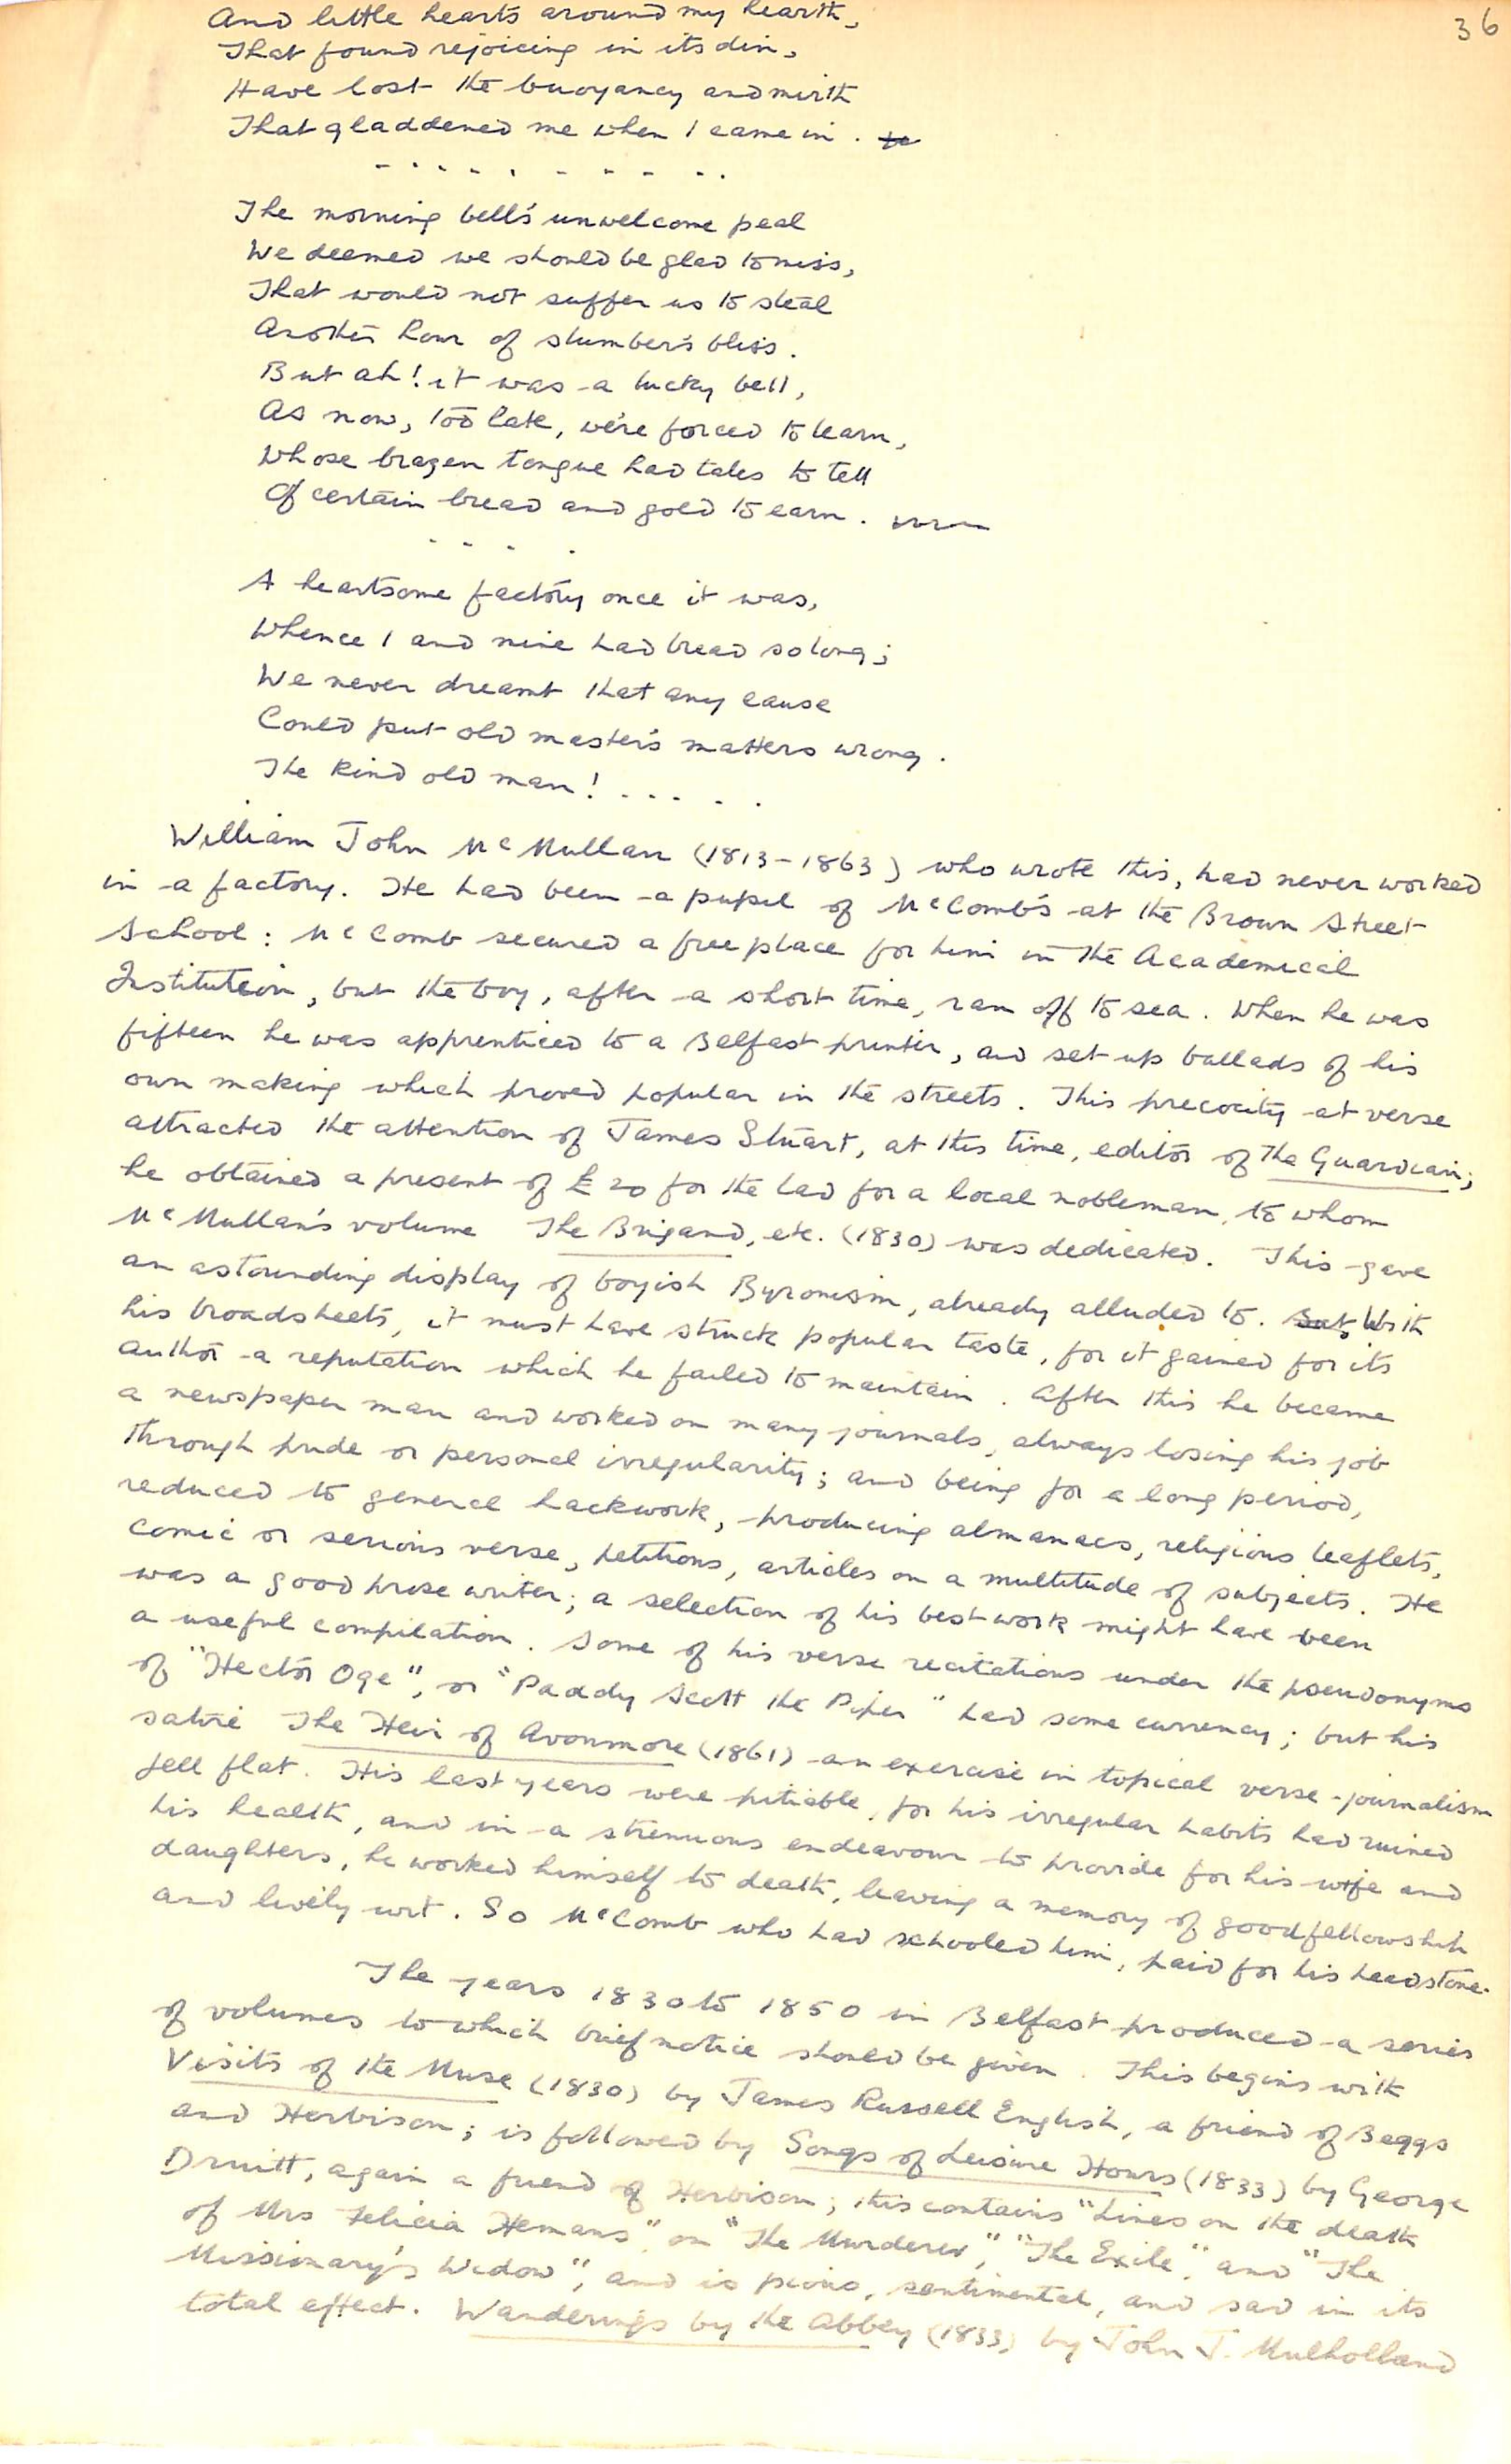 36
And little hearts around my hearth,
That found rejoicing in its din,
Have lost the buoyancy and mirth
That gladdened me when I came in.
- . - - . - - - - . .
The morning bell's unwelcome peal
We deemed we should be glad to miss,
That would not suffer us to steal
Another hour of slumber's bliss.
But ah! it was a lucky bell,
As now, too late, we're forced to learn,
Whose brazen tongue had tales to tell
Of certain bread and gold to earn.
- - - .
A heartsome factory once it was,
Whence I and mine had bread so long;
We never dreamt that any cause
Could put old master's matters wrong.
The kind old man! . . . . .
William John McMullan (1813-1863) who wrote this, had never worked
in a factory. He had been a pupil of McComb's at the Brown Street
School: McComb secured a free place for him in the Academical
Institution, but the boy, after a short time, ran off to sea. When he was
fifteen he was apprenticed to a Belfast printer, and set up ballads of his
own making which proved popular in the streets. This precocity at verse
attracted the attention of James Stuart, at this time, editor of The Guardian;
he obtained a present of £20 for the lad for a local nobleman, to whom
McMullan's volume The Brigand, etc. (1830) was dedicated. This gave
an astounding display of boyish Byronism, already alluded to. But, With
his broadsheets, it must have struck popular taste, for it gained for its
author a reputation which he failed to maintain. After this he became
a newspaper man and worked on many journals, always losing his job
through pride or personal irregularity; and being for a long period,
reduced to general hackwork, producing almanacs, religious leaflets,
comic or serious verse, petitions, articles on a multitude of subjects. He
was a good prose writer; a selection of his best work might have been
a useful compilation. Some of his verse recitations under the pseudonyms
of "Hector Oge", or "Paddy Scott the Piper" had some currency; but his
satire The Heir of Avonmore (1861) an exercise in topical verse-journalism
fell flat. His last years were pitiable, for his irregular habits had ruined
his health, and in a strenuous endeavour to provide for his wife and
daughters, he worked himself to death, leaving a memory of goodfellowship
and lively wit. So McComb who had schooled him, paid for his headstone.
The years 1830 to 1850 in Belfast produced a series
of volumes to which brief notice should be given. This begins with
Visits of the Muse (1830) by James Russell English, a friend of Beggs
and Herbison; is followed by Songs of Leisure Hours (1833) by George
Druitt, again a friend of Herbison; this contains "Lines on the death
of Mrs Felicia Hemans" on "The Murderer", "The Exile", and "The
Missionary's Widow", and is pious, sentimental, and sad in its
total effect. Wanderings by the Abbey (1833) by John J. Mulholland